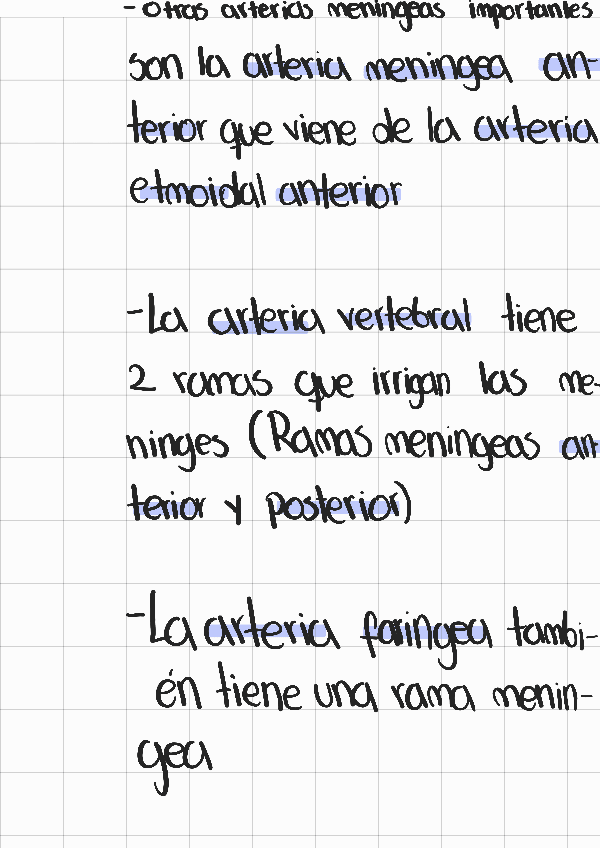 - Otras arterias meníngeas importantes
son la arteria meníngea an-
terior que viene de la arteria
etmoidal anterior
-La arteria vertebral tiene
2 ramas que irrigan las me-
ninges (Ramas meníngeas an
terior y posterior)
-La arteria faríngea tambi-
én tiene una rama menín-
gea